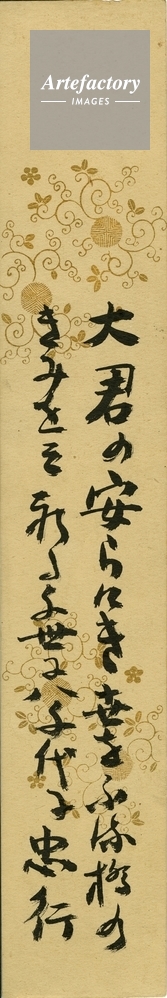 Artefactory
IMAGES
大君の安らけき世を不流の
きみをそ祈る千世に八千代に 忠行